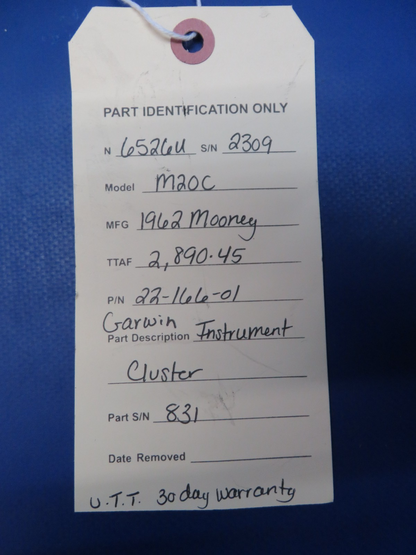 PART IDENTIFICATION ONLY
N 6526U S/N 2309
Model M20C
MFG 1962 Mooney
TTAF 2,890.45
P/N 22-166-01
Garwin
Part Description Instrument
Cluster
Part S/N 831
Date Removed
U.T.T. 30 day warranty